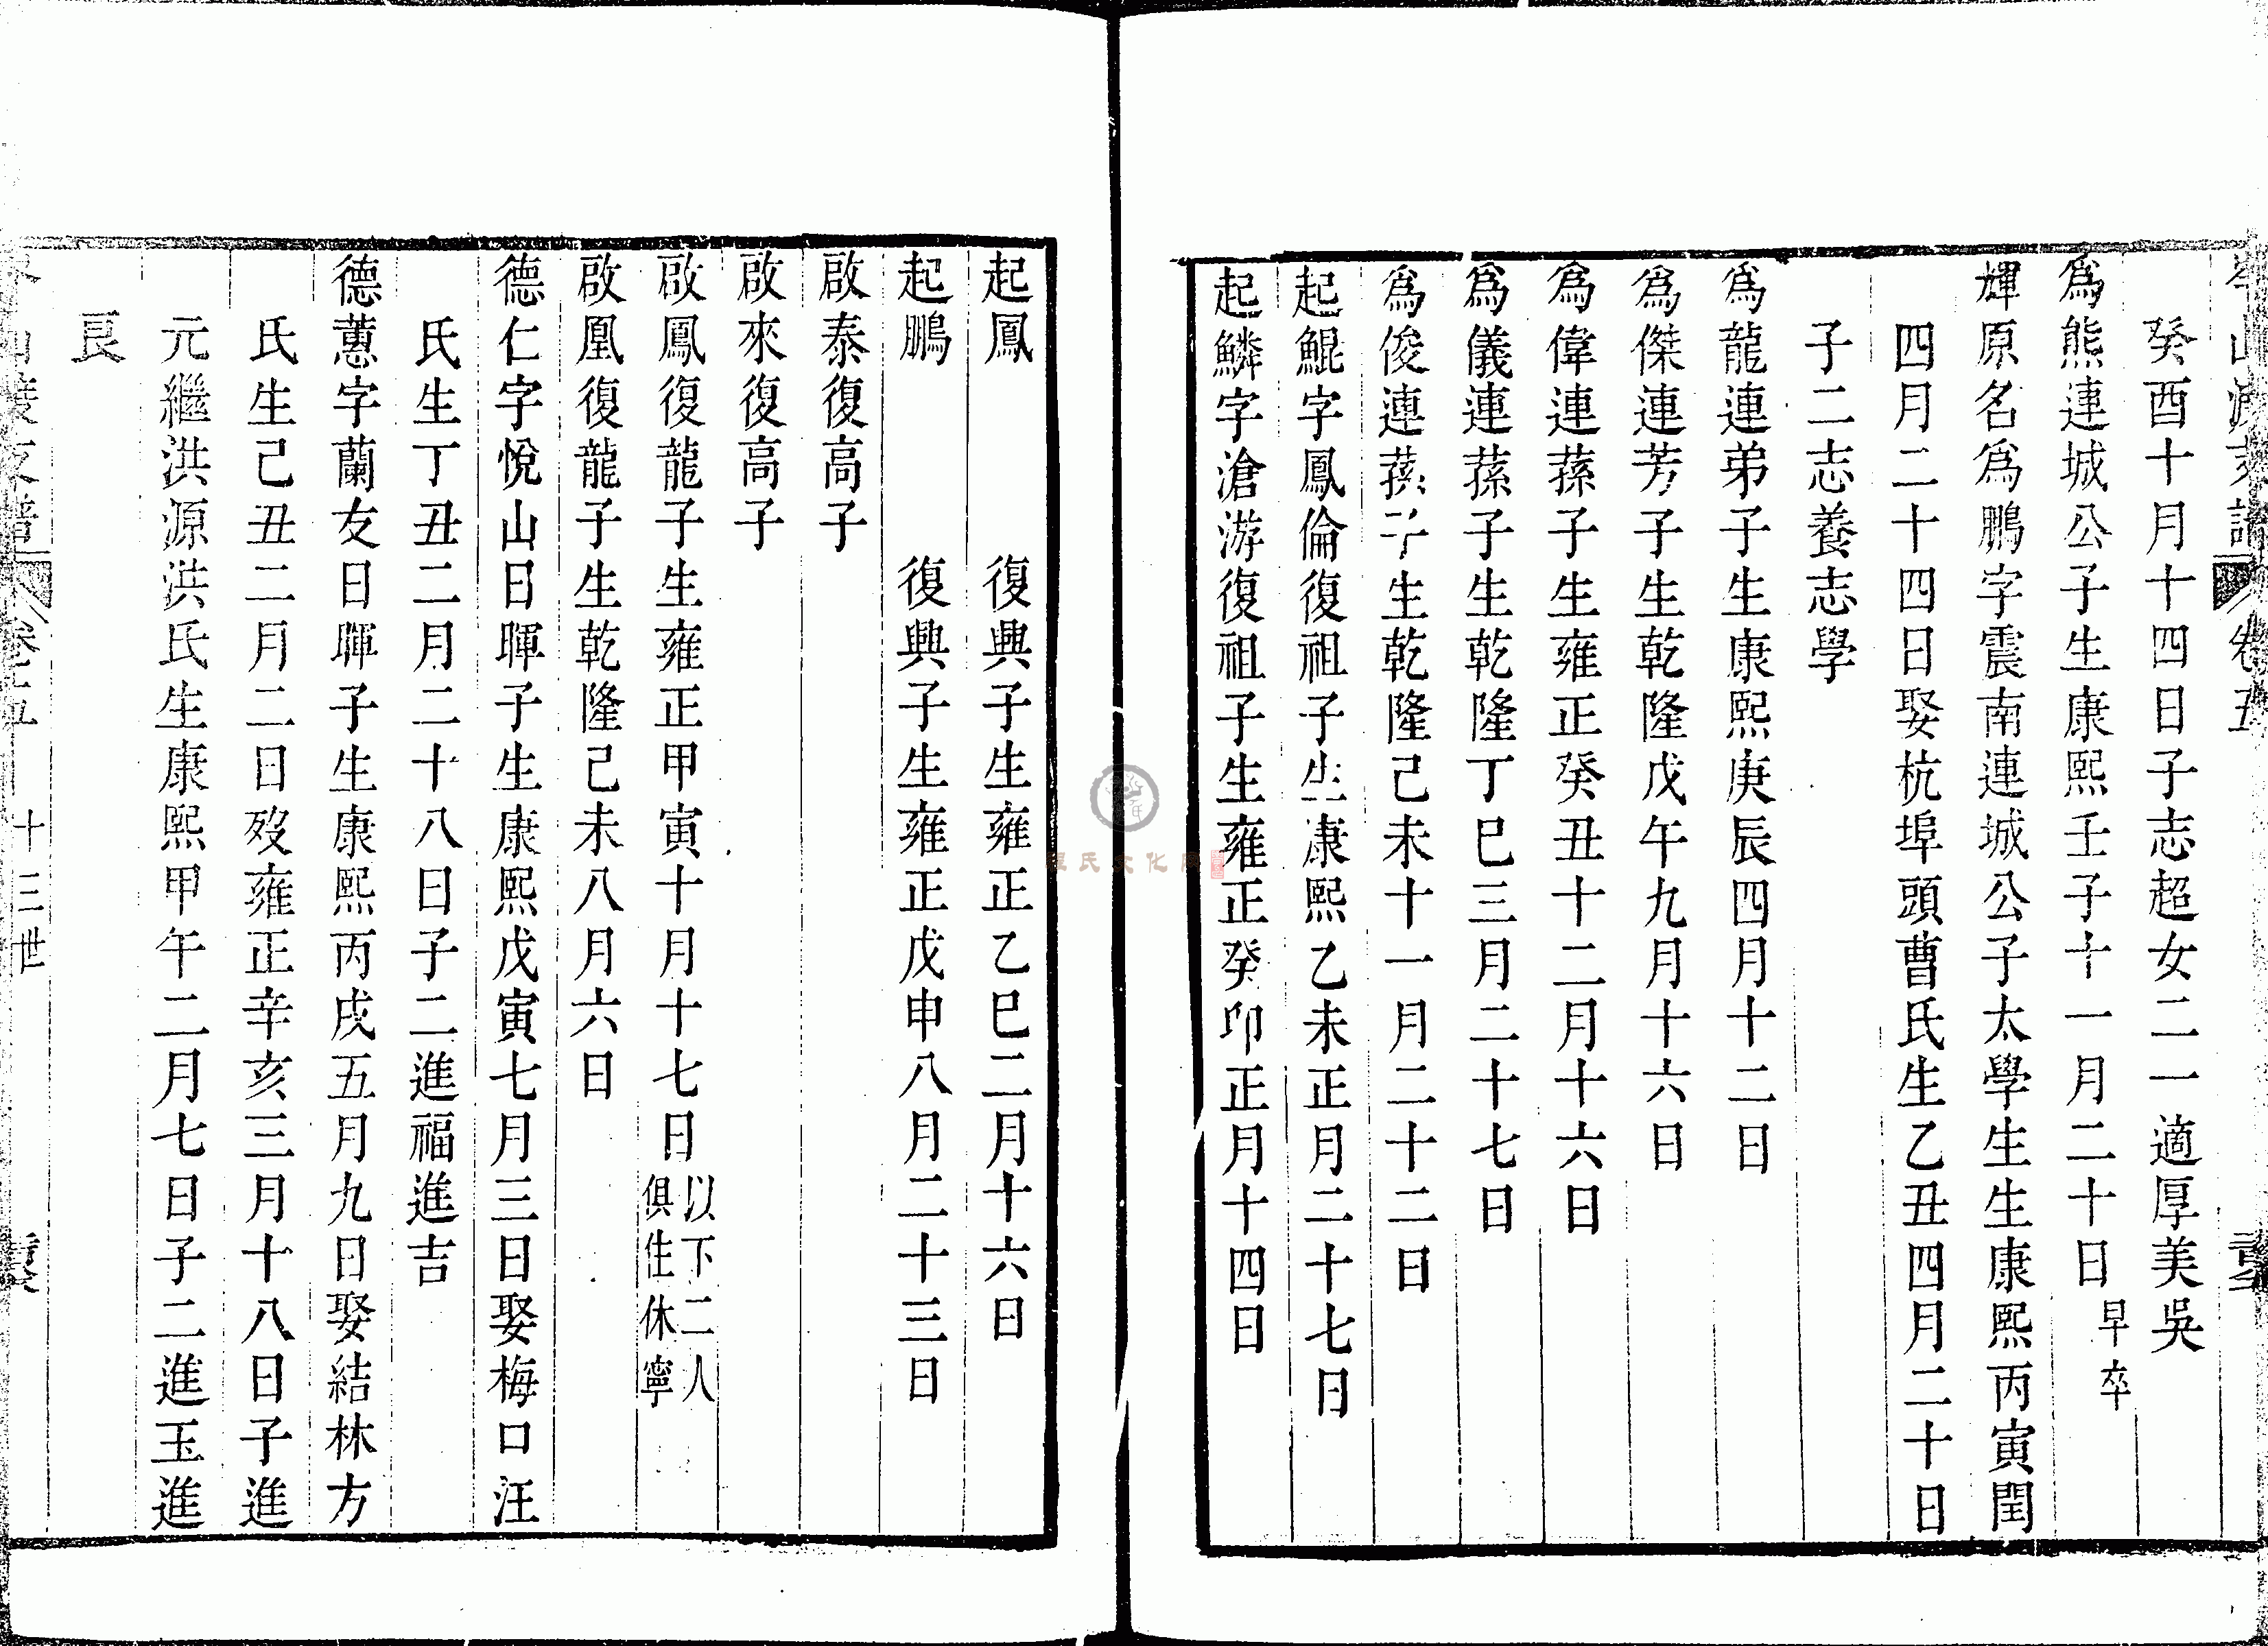 癸酉十月十四日子志超女二一適厚美吳
爲熊連城公子生康熙壬子十一月二十日早卒
輝原名爲鵬字震南連城公子太學生生康熙丙寅閏
四月二十四日娶杭埠頭曹氏生乙丑四月二十日
子二志養志學
爲龍連弟子生康熙庚辰四月十二日
爲傑連芳子生乾隆戊午九月十六日
爲偉連蓀子生雍正癸丑十二月十六日
爲儀連蓀子生乾隆丁巳三月二十七日
爲俊連蓀子生乾隆己未十一月二十二日
起鯤字鳳倫復祖子生康熙乙未正月二十七日
起鱗字滄游復祖子生雍正癸卯正月十四日
起鳳 復興子生雍正乙巳二月十六日
起鵬 復興子生雍正戊申八月二十三日
啟泰復高子
啟來復高子
啟鳳復龍子生雍正甲寅十月十七日以下二人俱住休寧
啟凰復龍子生乾隆己未八月六日
德仁字悅山日暉子生康熙戊寅七月三日娶梅口汪
氏生丁丑二月二十八日子二進福進吉
德蕙字蘭友日暉子生康熙丙戌五月九日娶結林方
氏生己丑二月二日歿雍正辛亥三月十八日子進
元繼洪源洪氏生康熙甲午二月七日子二進玉進
艮
十三世